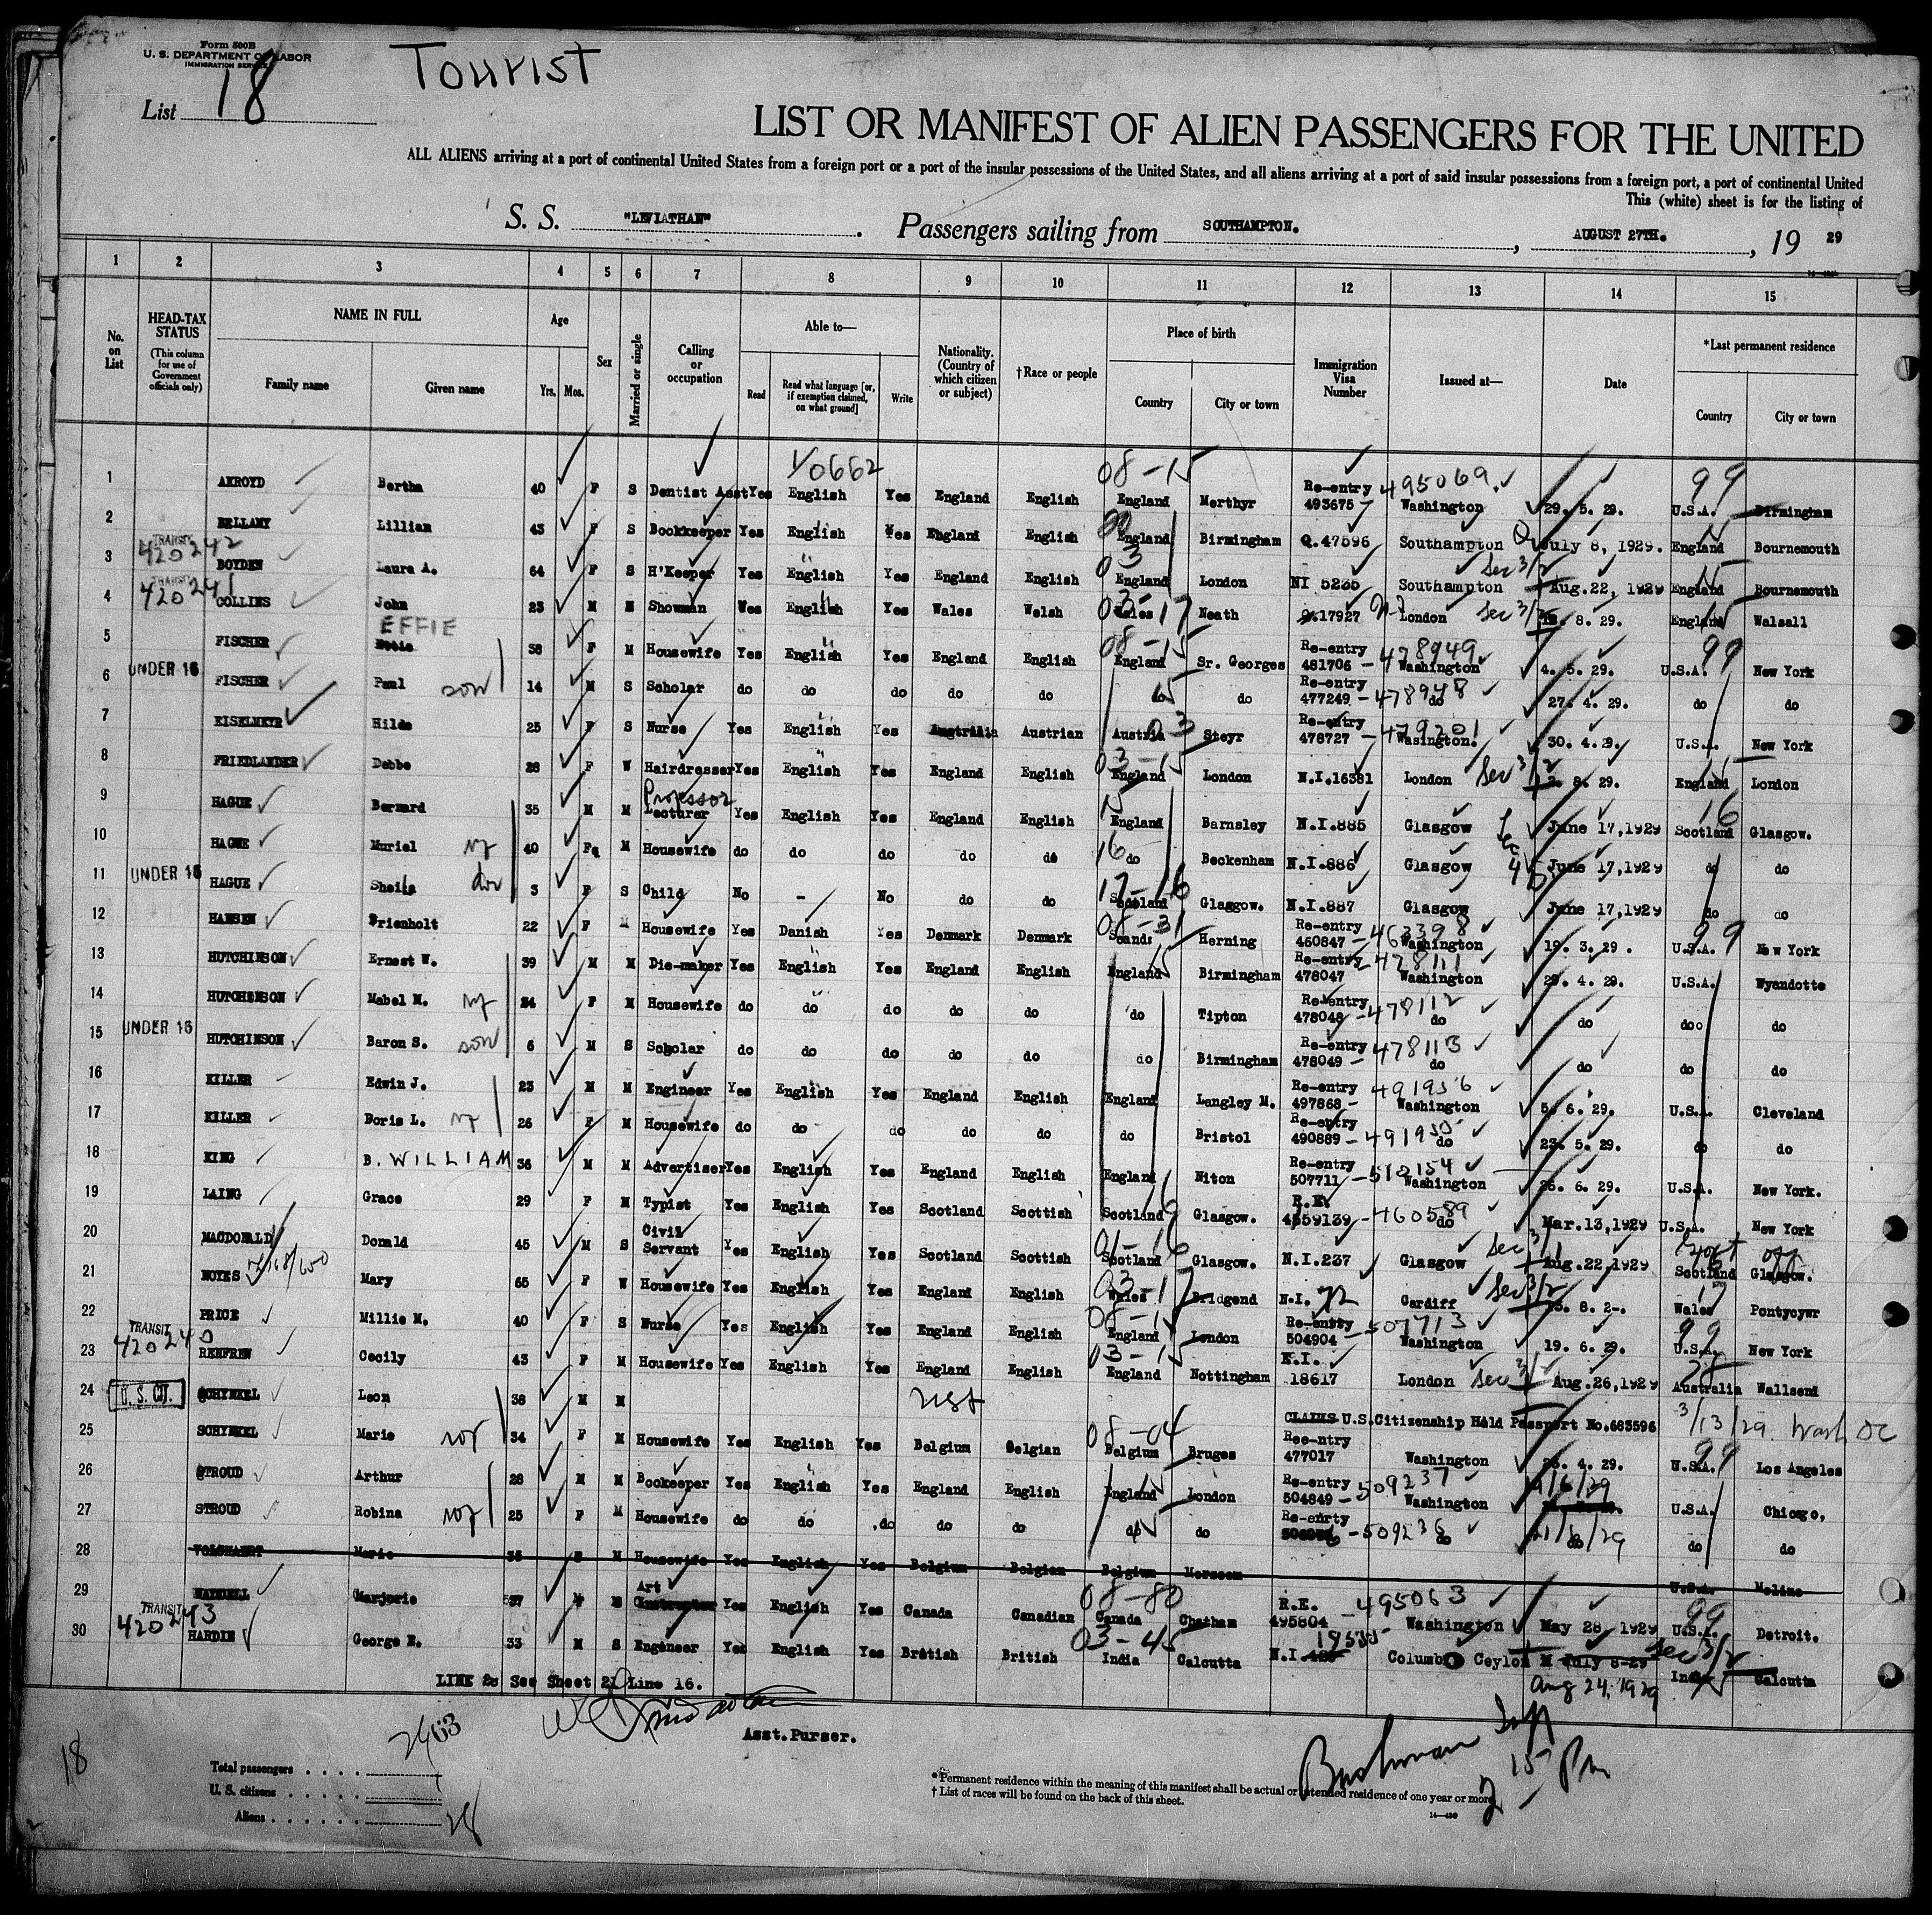 Form 500B
U. S. DEPARTMENT OF LABOR
IMMIGRATION SERVICE
Tourist
List 18
LIST OR MANIFEST OF ALIEN PASSENGERS FOR THE UNITED
ALL ALIENS arriving at a port of continental United States from a foreign port or a port of the insular possessions of the United States, and all aliens arriving at a port of said insular possessions from a foreign port, a port of continental United
This (white) sheet is for the listing of
S. S. "LEVIATHAN". Passengers sailing from SOUTHAMPTON., AUGUST 27TH., 19 29
1 2 3 4 5 6 7 8 9 10 11 12 13 14 15
No. on List HEAD-TAX STATUS (This column for use of Government officials only) NAME IN FULL Family name Given name Age Yrs. Mos. Sex Married or single Calling or occupation Able to— Read Read what language [or, if exemption claimed, on what ground] Write Nationality. (Country of which citizen or subject) † Race or people Place of birth Country City or town Immigration Visa Number Issued at— Date *Last permanent residence Country City or town
1 AKROYD Bertha 40 F S Dentist Asst Yes English Yes England English 08-15 England Merthyr Re-entry 493675 - 495069 Washington 29. 5. 29. 99 U.S.A. Birmingham
2 BELLAMY Lillian 43 F S Bookkeeper Yes English Yes England English England Birmingham Q.47596 Southampton July 8, 1929. England Bournemouth
3 TRANSIT 420242 BOYDEN Laura A. 64 F S H'Keeper Yes English Yes England English 03 England London NI 5235 Southampton Sec 3/2 Aug.22, 1929 England Bournemouth
4 TRANSIT 420241 COLLINS John 23 M M Showman Yes English Yes Wales Welsh 03-17 Wales Neath 17927 London Sec 3/2 8. 29. England Walsall
5 FISCHER EFFIE 38 F M Housewife Yes English Yes England English 08-15 England Sr. Georges Re-entry 481706 - 478949 Washington 4. 5. 29. 99 U.S.A. New York
6 UNDER 16 FISCHER Paul son 14 M S Scholar do do do do do do do Re-entry 477249 - 478948 do 27. 4. 29. do do
7 EISELMEYR Hilde 25 F S Nurse Yes English Yes Austrian Austria 03 Steyr Re-entry 478727 - 479201 Wasington. 30. 4. 29. U.S.A. New York
8 FRIEDLANDER Debbe 28 F W Hairdresser Yes English Yes England English 03-15 England London N.I.16381 London Sec 3/2 8. 29. England London
9 HAGUE Bernard 35 M M Professor Lecturer Yes English Yes England English 15 England Barnsley N.I.885 Glasgow June 17,1929 16 Scotland Glasgow.
10 HAGUE Muriel wf 40 F M Housewife do do do do do 16 do Beckenham N.I.886 Glasgow June 17,1929 do do
11 UNDER 16 HAGUE Sheila 3 F S Child No - No do do 17-16 Scotland Glasgow. N.I.887 Glasgow June 17,1929 do do
12 HANSEN 22 F M Housewife Yes Danish Yes Denmark Denmark 08-31 Scand: Herning Re-entry 460847 - 463398 Washington 19. 3. 29. 99 U.S.A. New York
13 HUTCHINSON Ernest W. 39 M M Die-maker Yes English Yes England English England 15 Birmingham Re-entry 478047 - 478111 Washington 29. 4. 29. U.S.A. Wyandotte
14 HUTCHINSON Mabel M. wf 34 F M Housewife do do do do do do Tipton Re-entry 478048 - 478112 do do do do
15 UNDER 16 HUTCHINSON Baron S. son 6 M S Scholar do do do do do do Birmingham Re-entry 478049 - 478113 do do do do
16 KILLER Edwin J. 23 M M Engineer Yes English Yes England English England Langley M. Re-entry 497868 - 491956 Washington 5. 6. 29. U.S.A. Cleveland
17 KILLER Doris L. wf 26 F M Housewife do do do do do do Bristol Re-entry 490889 - 491955 do 23. 5. 29. do do
18 KING B. WILLIAM 36 M M Advertiser Yes English Yes England English England Niton Re-entry 507711 - 512154 Washington 26. 6. 29. U.S.A. New York.
19 LAING Grace 29 F M Typist Yes English Yes Scotland Scottish Scotland Glasgow. R.E. 4559139 - 460589 do Mar.13,1929 U.S.A. New York
20 MACDONALD Donald 45 M S Civil Servant Yes English Yes Scotland Scottish 01-16 Scotland Glasgow. N.I.237 Glasgow Sec 3/1 Aug.22,1929 Scotland Glasgow.
21 NOYES Mary 65 F W Housewife Yes English Yes England English 03-17 Wales Bridgend N.I. 72 Cardiff Sec 3/2 8. 2-. 17 Wales Pontycywr
22 PRICE Millie M. 40 F S Nurse Yes English Yes England English 08-15 England London Re-entry 504904 - 507713 Washington 19. 6. 29. 99 U.S.A. New York
23 TRANSIT 420240 RENFREW Cecily 43 F M Housewife Yes English Yes England English 03-15 England Nottingham N.I. 18617 London Sec 3/2 Aug.26,1929 28 Australia Wallsend
24 U.S. CIT. SCHYNKEL Leon 38 M M USA CLAIMS U.S.Citizenship Held Passport No.683596 3/13/29. Wash DC
25 SCHYNKEL Marie wf 34 F M Housewife Yes English Yes Belgium Belgian 08-04 Belgium Bruges Ree-ntry 477017 Washington 26. 4. 29. 99 U.S.A. Los Angeles
26 STROUD Arthur 28 M M Bookeeper Yes English Yes England English England London Re-entry 504849 - 509237 Washington U.S.A. Chicago,
27 STROUD Robina wf 25 F M Housewife do do do do do do do Re-enrty - 509236 do 21/6/29 do do
28 VOLCHAERT Marie 35 F M Housewife Yes English Yes Belgium Belgian Belgium Merssem U.S.A. Moline
29 WADDELL Marjorie Art Yes English Yes Canada Canadian 08-80 Canada Chatham R.E. 495804 - 495063 Washington May 28, 1929 99 U.S.A. Detroit.
30 TRANSIT 420243 HARDIE George E. 33 M S Engineer Yes English Yes British British 03-45 India Calcutta N.I. Ceylon July 8-29 Sec 3/2 Aug 24, 1929 India Calcutta
LINE 28 See Sheet 21 Line 16.
Asst.Purser.
18
Total passengers
U. S. citizens
Aliens 28
* Permanent residence within the meaning of this manifest shall be actual or intended residence of one year or more.
† List of races will be found on the back of this sheet.
14—430